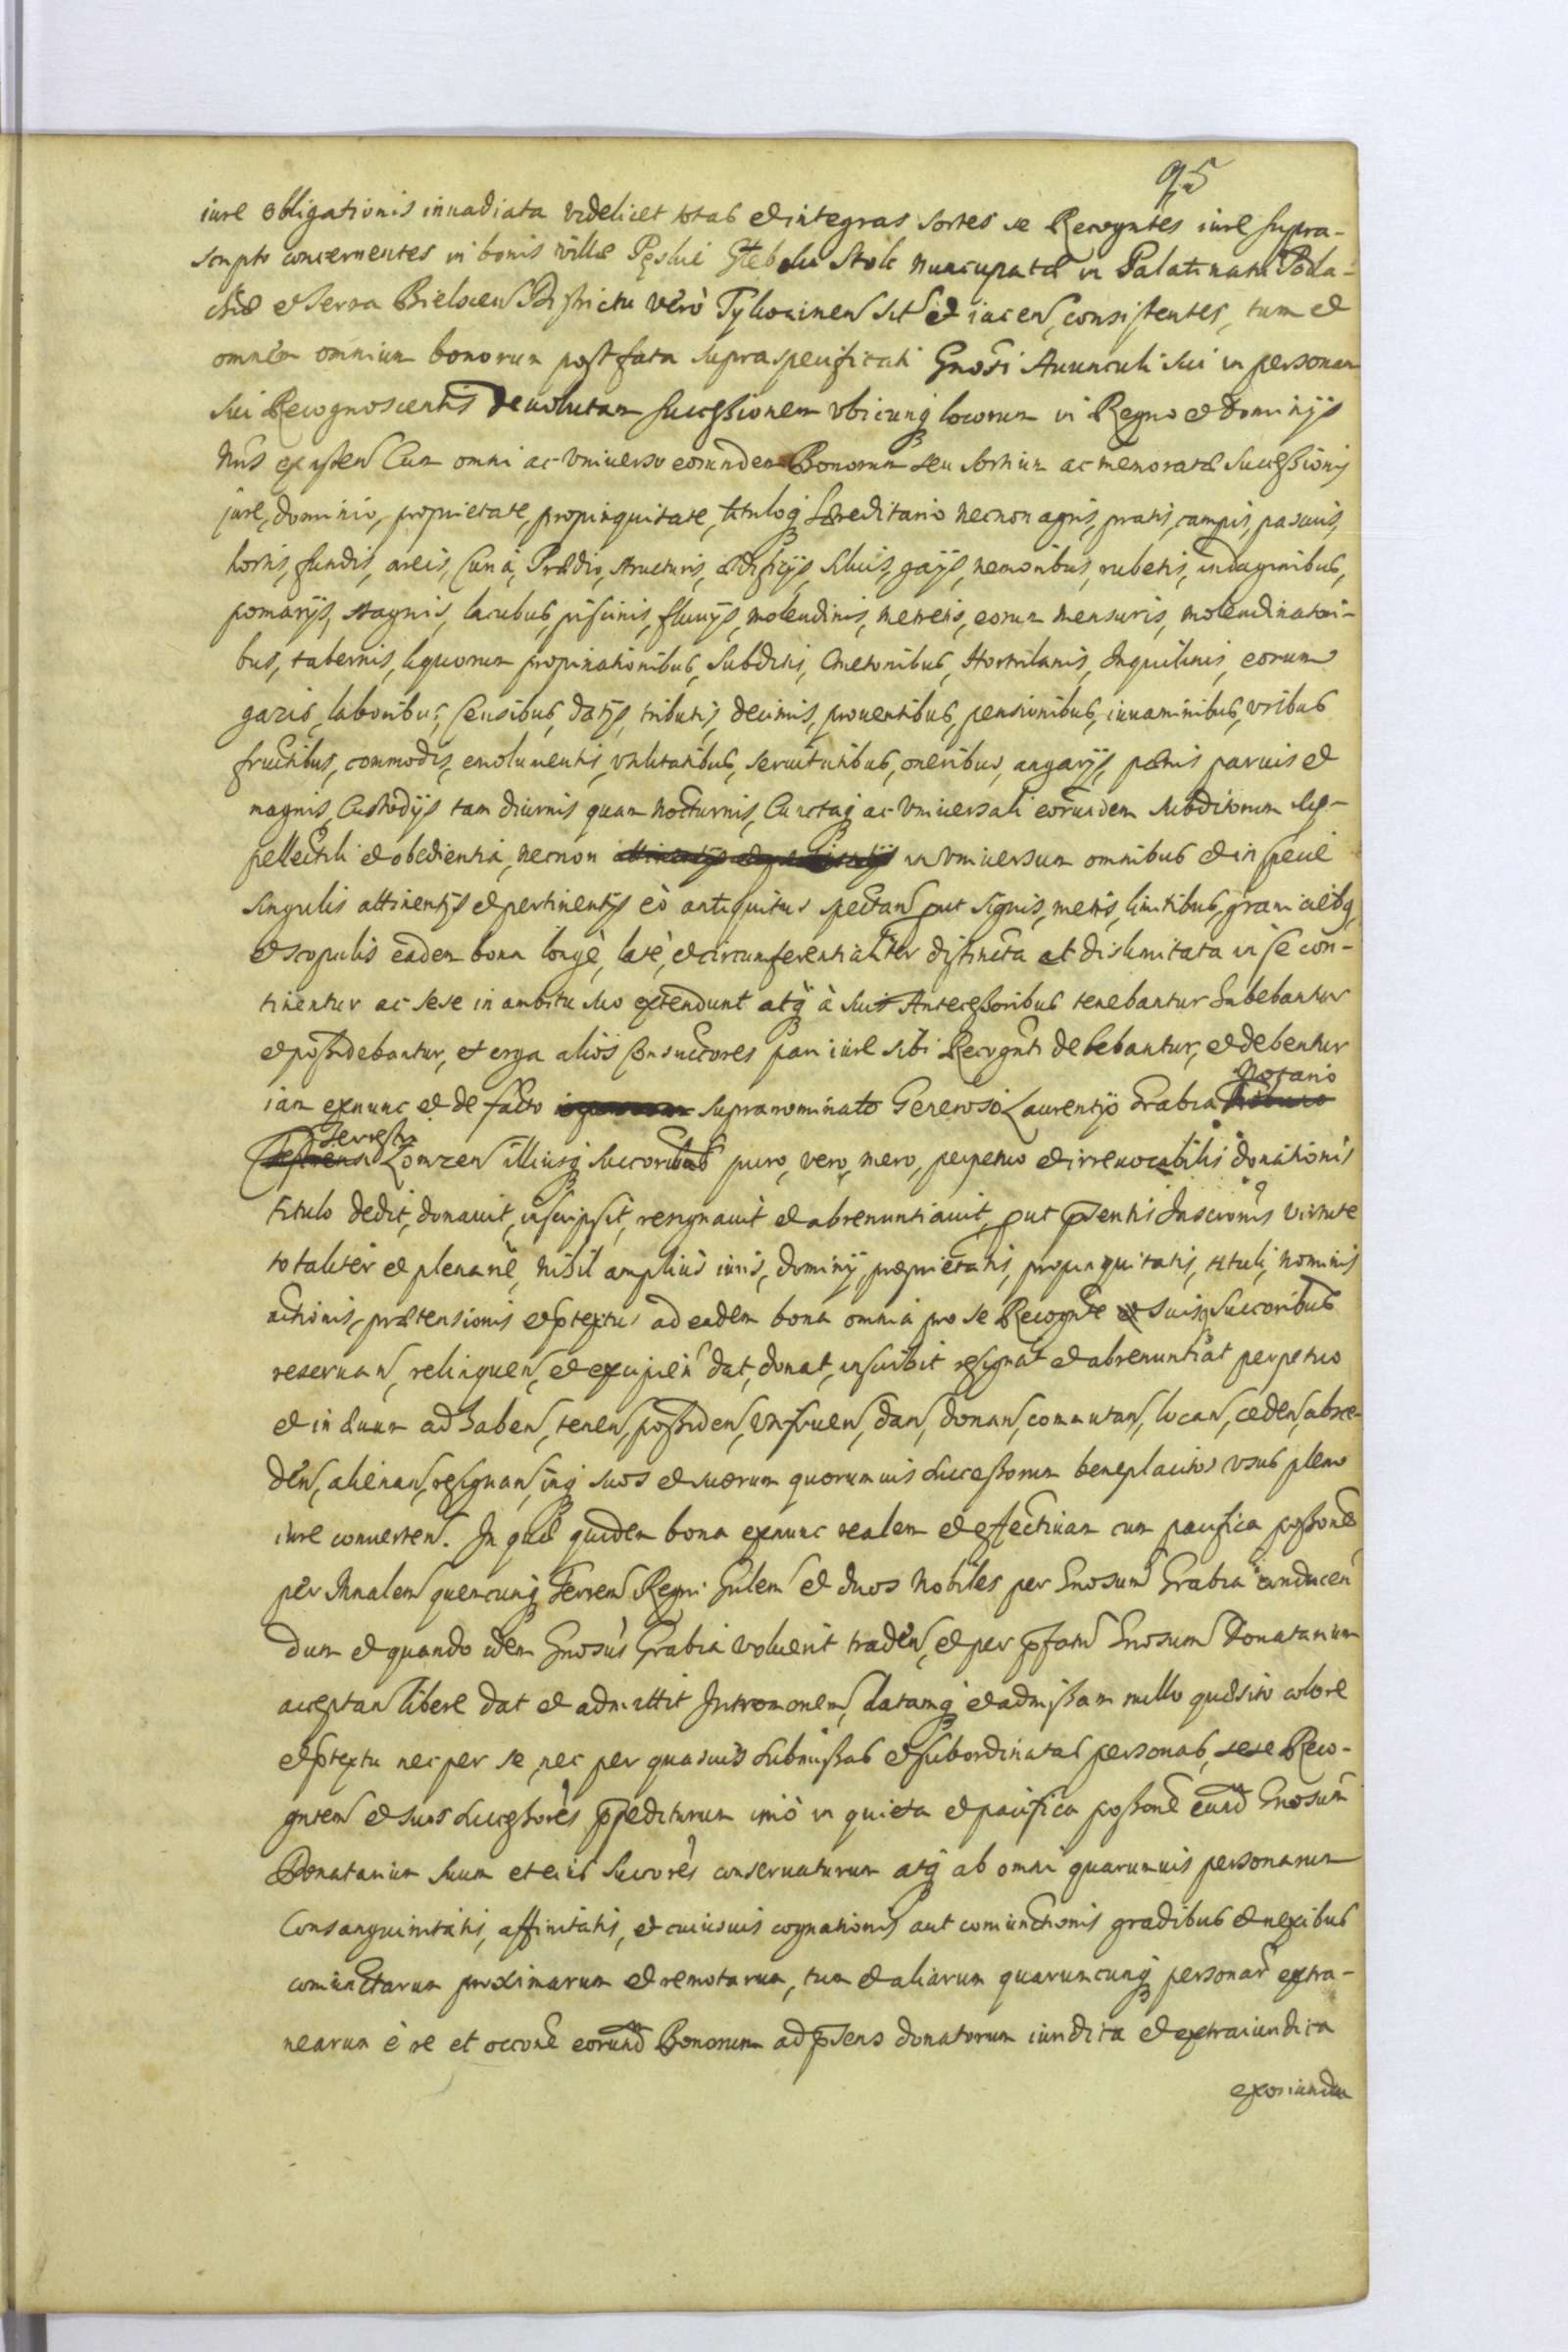 95
iure obligationis inuadiata videlicet totas et integras sortes se Recogntes iure supra-
scripto concernentes in bonis villae Stok nuncupatae in Palatinatu Podla-
chiae et Terra Bielscen Districtu verò Tykocinen sit et iacen, consistentes, tum et
omnem omnium bonorum post fata supraspecificati Gnosi Auunculi sui in personam
sui Recognoscentis deuolutam successionem vbicunq locorum in Regno et Dominijs
huis existen Cum omni ac vniuerso eorundem Bonorum seu sortium ac memoratae successionis
jure, dominio, proprietate, propinquitate, tituloq haereditario necnon agris, pratis, campis, pascuis,
hortis, fundis, areis, Curia, Praedio, structuris, aedificijs, siluis, gaijs, nemoribus, rubetis, indaginibus,
pomarijs, stagnis, lacubus, piscinis, fluuijs, molendinis, emetis, eorum mensuris, molendinatori-
bus, tabernis, liquorum propinationibus, subditis, Cmetonibus, Hortulanis, Inquilinis, eorum
gazis, laboribus, censibus, datijs, tributis, decimis, prouentibus, pensionibus, iuuaminibus, vsibus
fructibus, commodis, emolumentis, vtilitatibus, seruitutibus, oneribus, angarijs, paenis paruis et
magnis, Custodijs tam diurnis quam nocturnis, Cunctaq ac vniuersali eorundem subditorum sup-
pellectili et obedientia, necnon attinentijs et pertinentijs in vniuersum omnibus et in specie
singulis attinentijs et pertinentijs eò antiquitus spectan put signis, metis, limitibus, graniciebq
et scopulis eadem bona longè, latè, et circumferentialiter distincta et dislimitata in se con-
tinentur ac sese in ambitu suo extendunt atq à suis Antecessoribus tenebantur habebantur
et possidebantur, et erga alios Consuccores pari iure sibi Recognti debebantur, et debentur
Notario
iam exnunc et de facto supranominato Generoso Laurentijo Grabia
Terrestri
Lomzen illiusq succoribus puro, vero, mero, perpetuo et irreuocabilis donationis
titulo dedit, donauit, inscripsit, resignauit et abrenuntiauit, put pntis Inscronis virtute
totaliter et plenariè, nihil amplius iuris, dominij, proprietatis, propinquitatis, tituli, nominis
actionis, praetensionis et ptextus ad eadem bona omnia pro se Recognte et suisq Succoribus
reseruan, relinquen, et excipien dat, donat, inscribit resignat et abrenuntiat perpetuo
et in aeuum ad haben, tenen, possiden, vtifruen, dan, donan, comutan, locan, ceden, abrce-
den, alienan, resignan, inq suos et suorum quorumuis Successorum beneplacitos vsus pleno
iure conuerten. In quae quidem bona exnunc realem et effectiuam cum pacifica possone
per Mnalem quencunq Terren Regni Gnlem et duos Nobiles per Gnosum Grabia conducen
dum et quando idem Gnosus Grabia voluerit traden, et per pfatum Gnosum Donatarium
acceptan libere dat et admittit Intromonem, datamq et admissam nullo quaesito colore
et ptextu nec per se, nec per quasuis submissas et subordinatas personas, sese Reco-
gntem et suos successores ppediturum imò in quieta et pacifica possone eund Gnosum
Donatarium suum et eius succores conseruaturum atq ab omni quarumuis personarum
Consanguinitatis, affinitatis, et cuiusuis cognationis aut coniunctionis gradibus et nexibus
coniunctarum proximarum et remotarum, tum et aliarum quaruncunq personar extra-
nearum è re et occone eorund Bonorum ad psens donatorum iundica et extraiundica
exoriundu